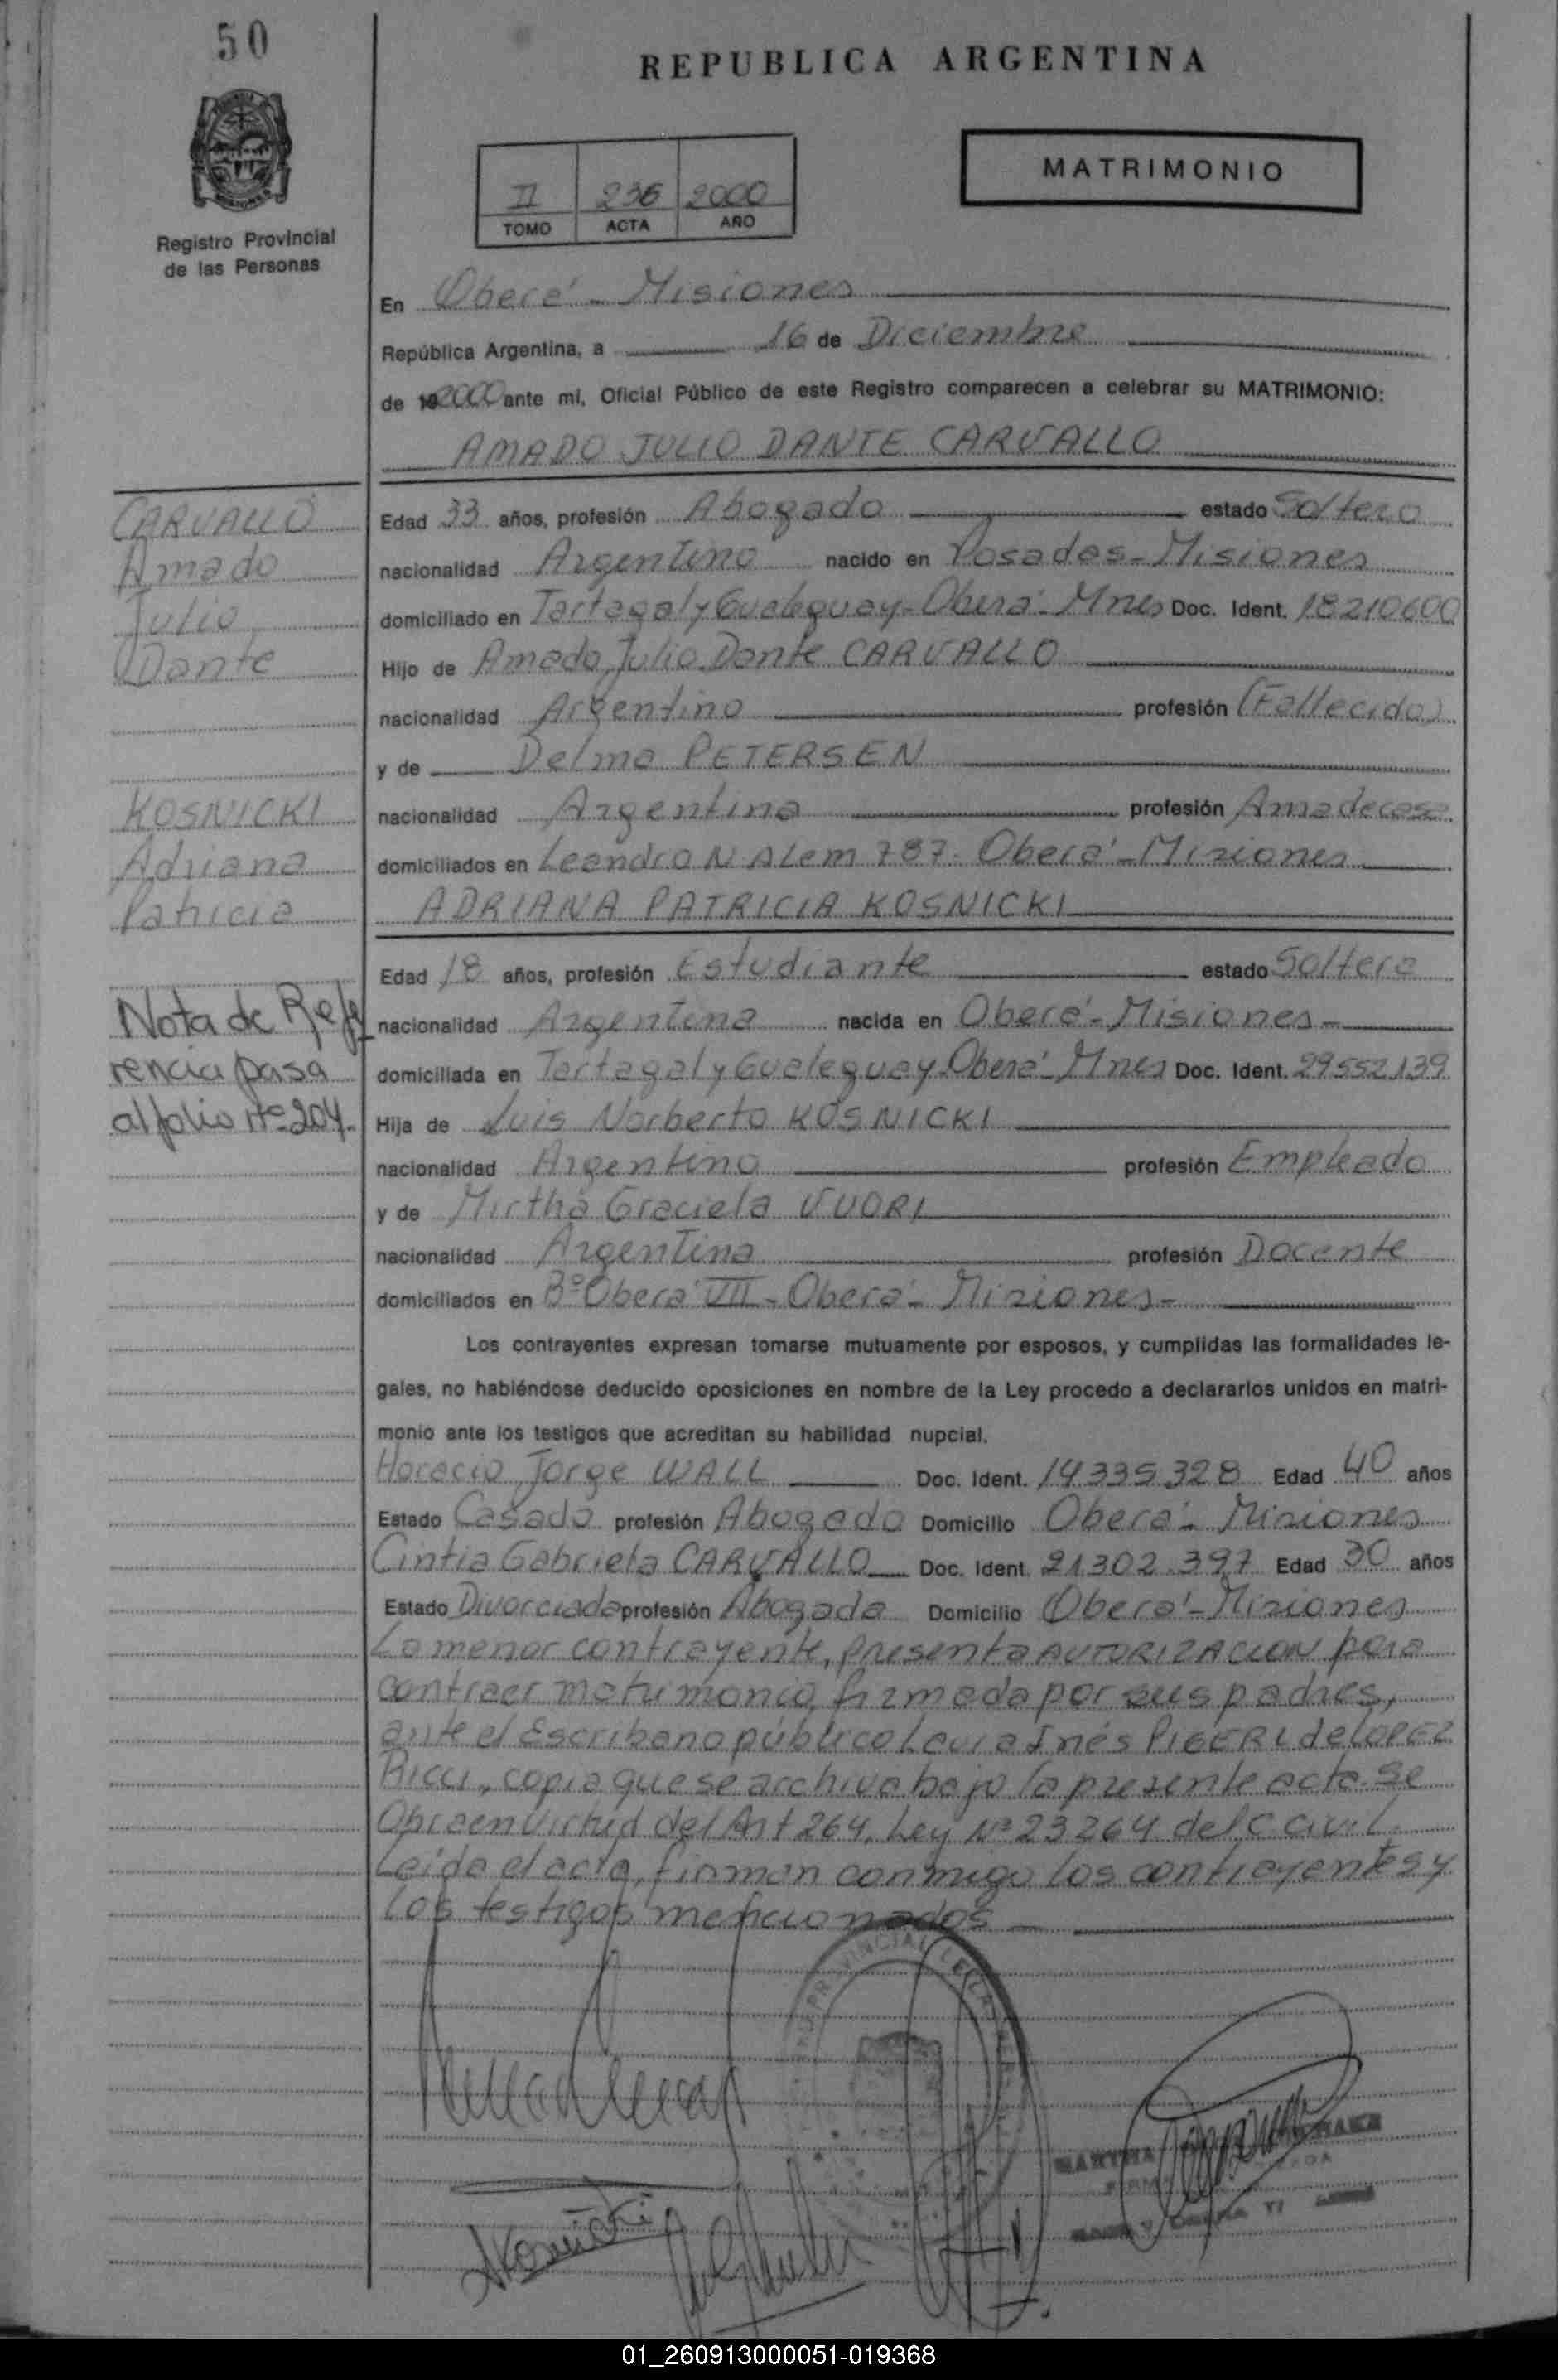 50
REPUBLICA ARGENTINA
II 236 2000
TOMO ACTA AÑO
MATRIMONIO
Registro Provincial
de las Personas
En Oberá - Misiones
República Argentina, a 16 de Diciembre
de 2000 ante mi, Oficial Público de este Registro comparecen a celebrar su MATRIMONIO:
AMADO JULIO DANTE CARVALLO
CARVALLO
Amado
Julio
Dante
Edad 33 años, profesión Abogado estado Soltero
nacionalidad Argentino nacido en Posadas - Misiones
domiciliado en Tartagal y Gualeguay - Oberá - Mnes Doc. Ident. 18210600
Hijo de Amado Julio Dante CARVALLO
nacionalidad Argentino profesión (Fallecido)
y de Delma PETERSEN
nacionalidad Argentina profesión Amadecasa
domiciliados en Leandro N Alem 787 - Oberá - Misiones
KOSNICKI
Adriana
Patricia
ADRIANA PATRICIA KOSNICKI
Edad 18 años, profesión Estudiante estado Soltera
nacionalidad Argentina nacida en Oberá - Misiones -
domiciliada en Tartagal y Gualeguay Oberá - Mnes Doc. Ident. 29552139
Nota de Refe
rencia pasa
al folio Nº 204.
Hija de Luis Norberto KOSNICKI
nacionalidad Argentino profesión Empleado
y de Mirtha Graciela VUORI
nacionalidad Argentina profesión Docente
domiciliados en Bº Oberá VII - Oberá - Misiones -
Los contrayentes expresan tomarse mutuamente por esposos, y cumplidas las formalidades le-
gales, no habiéndose deducido oposiciones en nombre de la Ley procedo a declararlos unidos en matri-
monio ante los testigos que acreditan su habilidad nupcial.
Horacio Jorge WALL Doc. Ident. 14335328 Edad 40 años
Estado Casado profesión Abogado Domicilio Oberá - Misiones
Cintia Gabriela CARVALLO Doc. Ident. 21.302.397 Edad 30 años
Estado Divorciada profesión Abogada Domicilio Oberá - Misiones
La menor contrayente, presenta AUTORIZACION para
contraer matrimonio, firmada por sus padres,
ante el Escribano público Inés de LOPEZ
RICCI, copia que se archiva bajo la presente acta. Se
Obra en virtud del Art 264. Ley Nº 23264 del C Civil.
Leida el acta, firman conmigo los contrayentes y
los testigos mencionados
Kosnicki
01_260913000051-019368